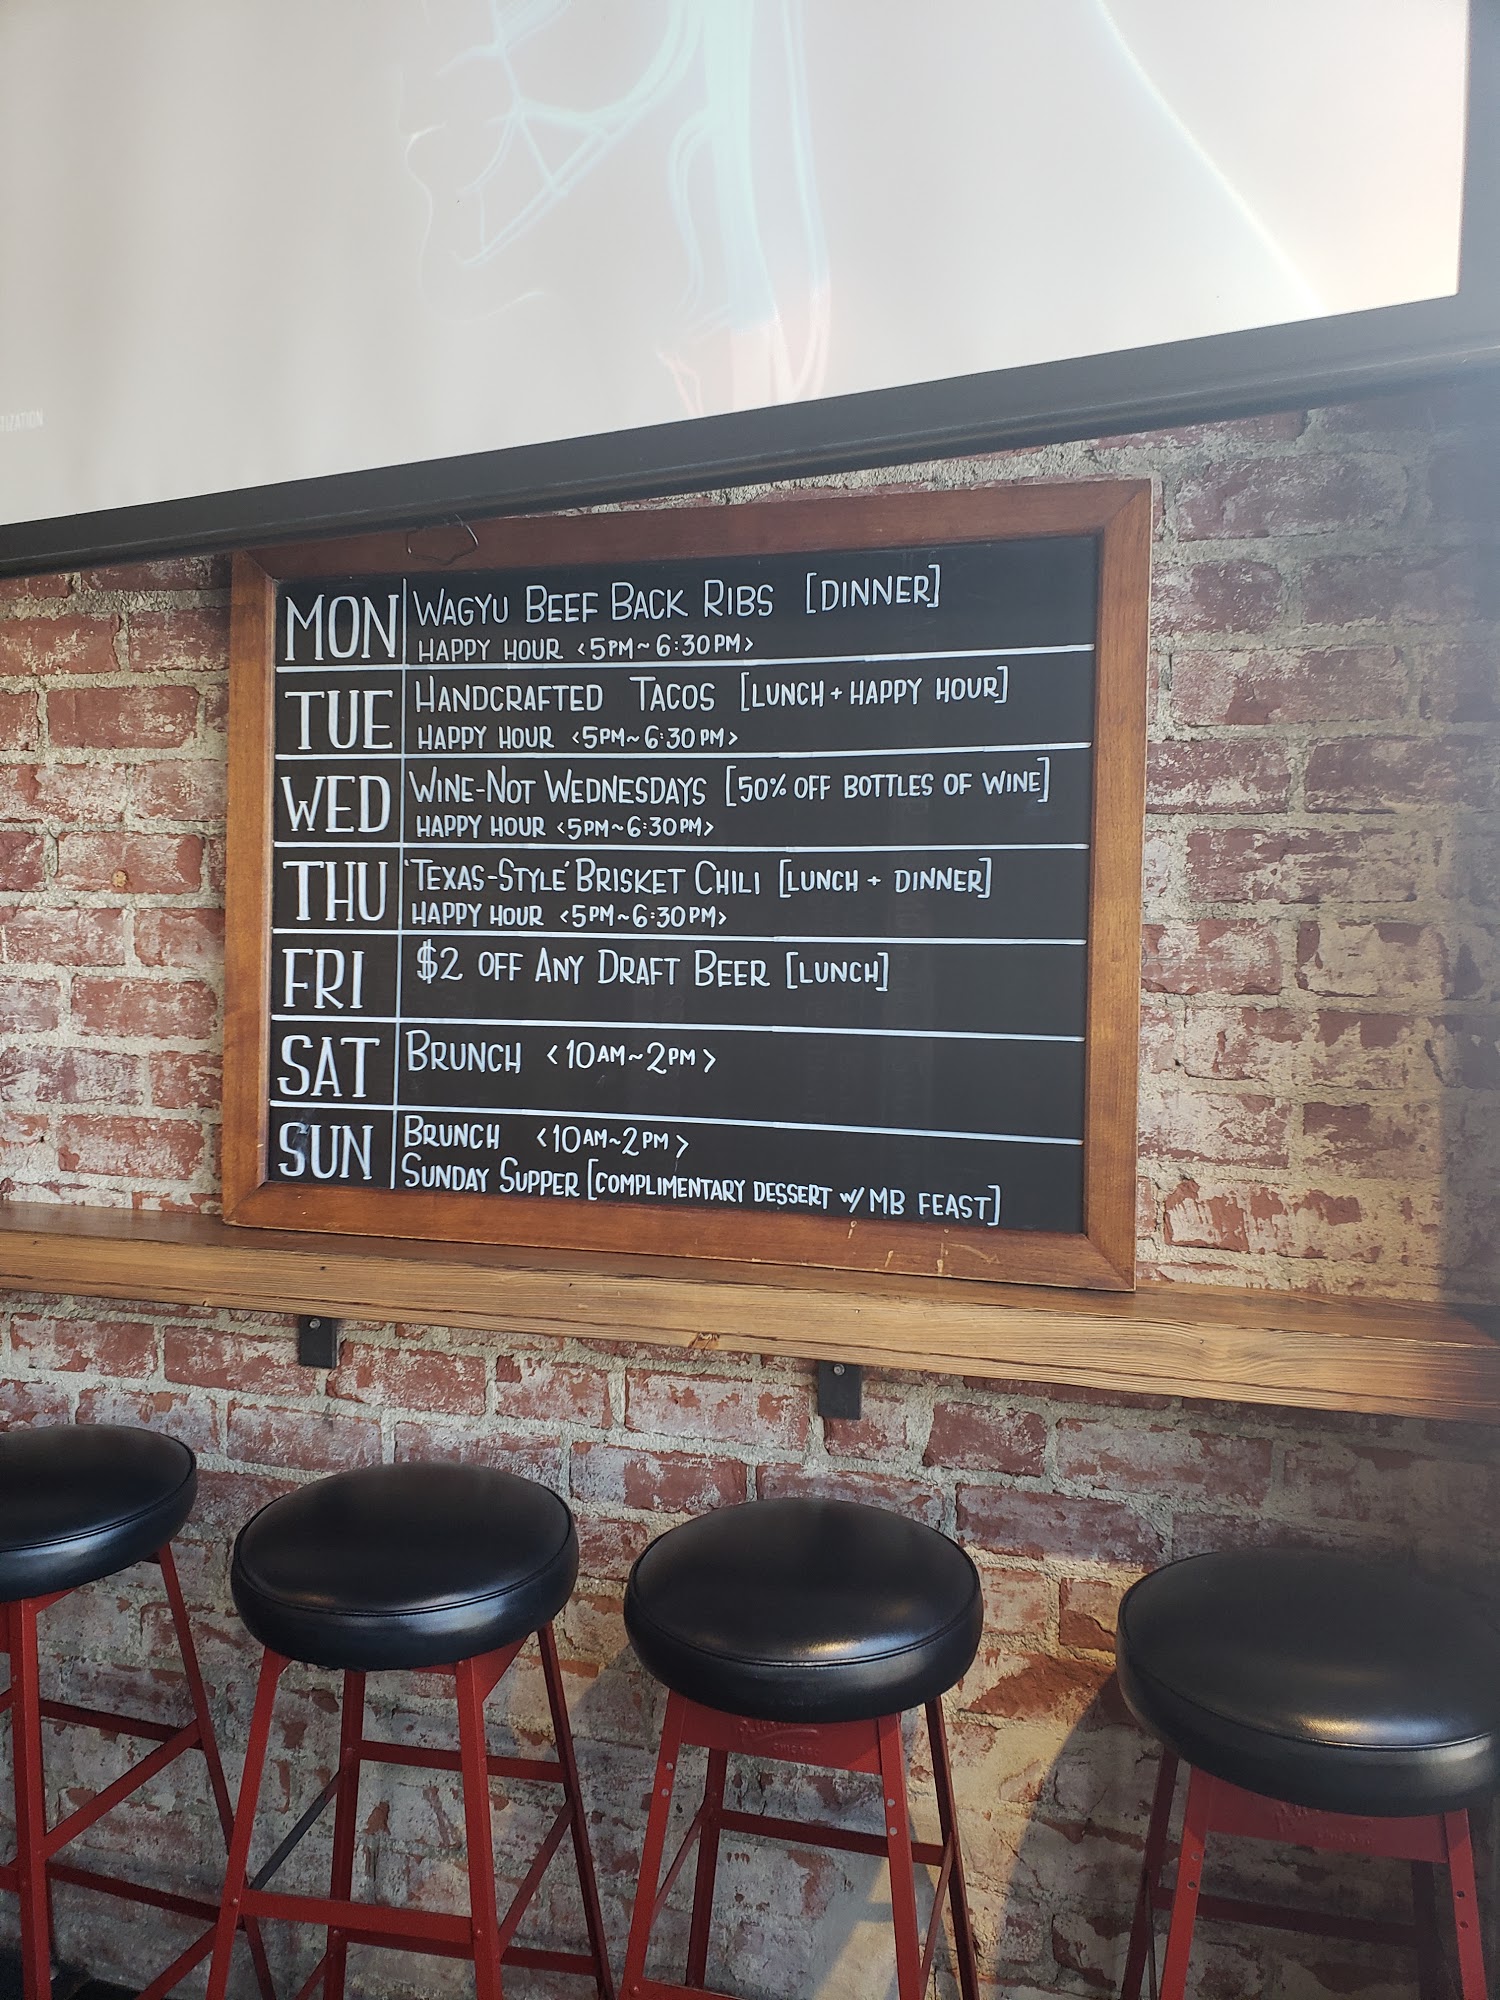 TIZATION
MON WAGYU BEEF BACK RIBS [DINNER]
HAPPY HOUR <5PM~6:30PM>
TUE HANDCRAFTED TACOS [LUNCH + HAPPY HOUR]
HAPPY HOUR <5PM~6:30PM>
WED WINE-NOT WEDNESDAYS [50% OFF BOTTLES OF WINE]
HAPPY HOUR <5PM~6:30PM>
THU 'TEXAS-STYLE' BRISKET CHILI [LUNCH + DINNER]
HAPPY HOUR <5PM~6:30PM>
FRI $2 OFF ANY DRAFT BEER [LUNCH]
SAT BRUNCH <10AM~2PM>
SUN BRUNCH <10AM~2PM>
SUNDAY SUPPER [COMPLIMENTARY DESSERT W/ MB FEAST]
CHICAGO